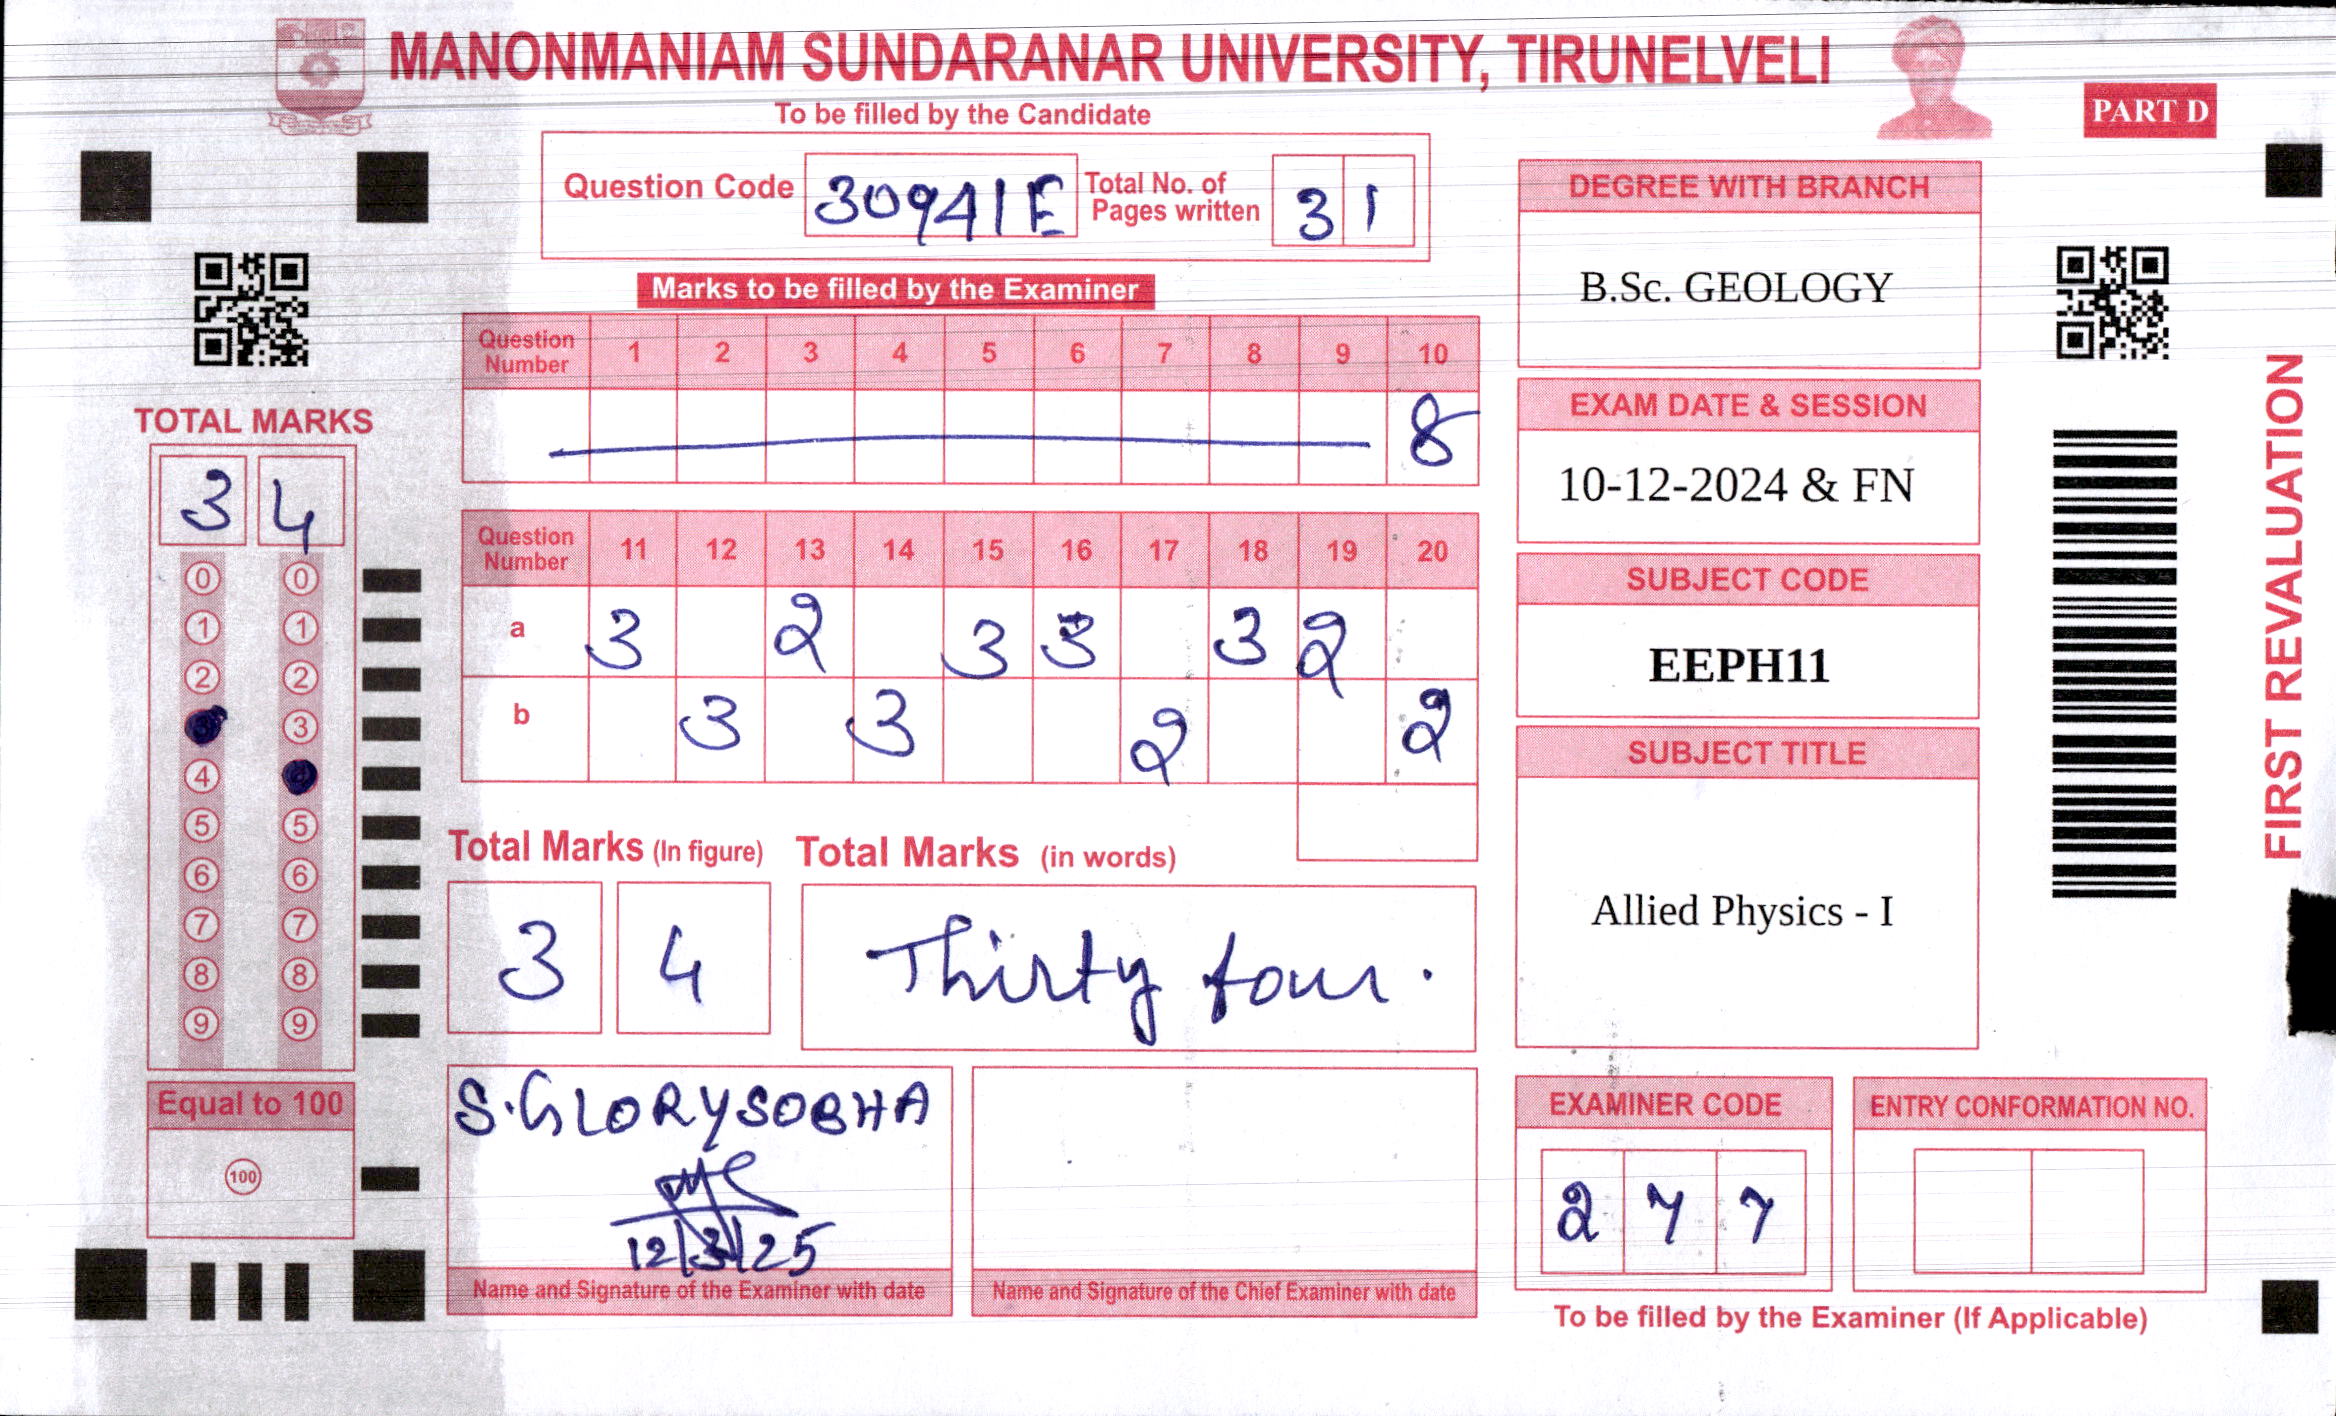 MANONMANIAM SUNDARANAR UNIVERSITY, TIRUNELVELI
PART D
To be filled by the Candidate
Question Code 30941E Total No. of Pages written 3 1
Marks to be filled by the Examiner
Question Number 1 2 3 4 5 6 7 8 9 10
8
Question Number 11 12 13 14 15 16 17 18 19 20
a 3 2 3 3 3 2
b 3 3 2 2
Total Marks (In figure) Total Marks (in words)
3 4 Thirty four.
S. GLORYSOBHA
12/3/25
Name and Signature of the Examiner with date
Name and Signature of the Chief Examiner with date
TOTAL MARKS
3 4
0 0
1 1
2 2
3
4
5 5
6 6
7 7
8 8
9 9
Equal to 100
100
DEGREE WITH BRANCH
B.Sc. GEOLOGY
EXAM DATE & SESSION
10-12-2024 & FN
SUBJECT CODE
EEPH11
SUBJECT TITLE
Allied Physics - I
EXAMINER CODE
2 7 7
ENTRY CONFORMATION NO.
To be filled by the Examiner (If Applicable)
FIRST REVALUATION